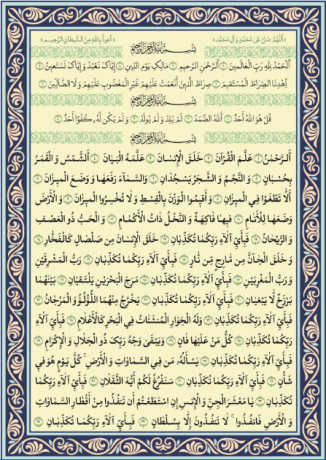 «اَللّٰهُمَّ صَلِّ عَلىٰ مُحَمَّدٍ وَ آلِ مُحَمَّد» «أَعوذُ بِاللّٰهِ مِنَ الشَّيطانِ الرَّجيم»
بِسْمِ اللّٰهِ الرَّحْمٰنِ الرَّحيمِ
اَلْحَمْدُ لِلّٰهِ رَبِّ الْعالَمينَ اَلرَّحْمٰنِ الرَّحيمِ مالِكِ يَوْمِ الدّينِ إِيّاكَ نَعْبُدُ وَ إِيّاكَ نَسْتَعينُ
اِهْدِنَا الصِّراطَ الْمُسْتَقيمَ صِراطَ الَّذينَ أَنْعَمْتَ عَلَيْهِمْ غَيْرِ الْمَغْضوبِ عَلَيْهِمْ وَ لَا الضّالّينَ
بِسْمِ اللّٰهِ الرَّحْمٰنِ الرَّحيمِ
قُلْ هُوَ اللّٰهُ أَحَدٌ اَللّٰهُ الصَّمَدُ لَمْ يَلِدْ وَ لَمْ يولَدْ وَ لَمْ يَكُنْ لَهُ كُفُوًا أَحَدٌ
بِسْمِ اللّٰهِ الرَّحْمٰنِ الرَّحيمِ
اَلرَّحْمٰنُ عَلَّمَ الْقُرْآنَ خَلَقَ الْإِنْسانَ عَلَّمَهُ الْبَيانَ اَلشَّمْسُ وَ الْقَمَرُ
بِحُسْبانٍ وَ النَّجْمُ وَ الشَّجَرُ يَسْجُدانِ وَ السَّماءَ رَفَعَها وَ وَضَعَ الْميزانَ
أَلّا تَطْغَوْا فِي الْميزانِ وَ أَقيمُوا الْوَزْنَ بِالْقِسْطِ وَ لا تُخْسِرُوا الْميزانَ وَ الْأَرْضَ
وَضَعَها لِلْأَنامِ فيها فاكِهَةٌ وَ النَّخْلُ ذاتُ الْأَكْمامِ وَ الْحَبُّ ذُو الْعَصْفِ
وَ الرَّيْحانُ فَبِأَيِّ آلاءِ رَبِّكُما تُكَذِّبانِ خَلَقَ الْإِنْسانَ مِنْ صَلْصالٍ كَالْفَخّارِ
وَ خَلَقَ الْجانَّ مِنْ مارِجٍ مِنْ نارٍ فَبِأَيِّ آلاءِ رَبِّكُما تُكَذِّبانِ رَبُّ الْمَشْرِقَيْنِ
وَ رَبُّ الْمَغْرِبَيْنِ فَبِأَيِّ آلاءِ رَبِّكُما تُكَذِّبانِ مَرَجَ الْبَحْرَيْنِ يَلْتَقِيانِ بَيْنَهُما
بَرْزَخٌ لا يَبْغِيانِ فَبِأَيِّ آلاءِ رَبِّكُما تُكَذِّبانِ يَخْرُجُ مِنْهُمَا اللُّؤْلُؤُ وَ الْمَرْجانُ
فَبِأَيِّ آلاءِ رَبِّكُما تُكَذِّبانِ وَ لَهُ الْجَوارِ الْمُنْشَآتُ فِي الْبَحْرِ كَالْأَعْلامِ فَبِأَيِّ آلاءِ
رَبِّكُما تُكَذِّبانِ كُلُّ مَنْ عَلَيْها فانٍ وَ يَبْقىٰ وَجْهُ رَبِّكَ ذُو الْجَلالِ وَ الْإِكْرامِ
فَبِأَيِّ آلاءِ رَبِّكُما تُكَذِّبانِ يَسْأَلُهُ مَنْ فِي السَّماواتِ وَ الْأَرْضِ كُلَّ يَوْمٍ هُوَ في
شَأْنٍ فَبِأَيِّ آلاءِ رَبِّكُما تُكَذِّبانِ سَنَفْرُغُ لَكُمْ أَيُّهَ الثَّقَلانِ فَبِأَيِّ آلاءِ رَبِّكُما
تُكَذِّبانِ يا مَعْشَرَ الْجِنِّ وَ الْإِنْسِ إِنِ اسْتَطَعْتُمْ أَنْ تَنْفُذوا مِنْ أَقْطارِ السَّماواتِ
وَ الْأَرْضِ فَانْفُذوا لا تَنْفُذونَ إِلّا بِسُلْطانٍ فَبِأَيِّ آلاءِ رَبِّكُما تُكَذِّبانِ